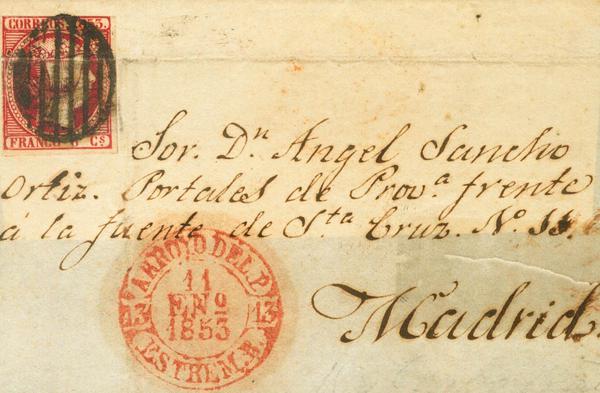 CORREOS 1853.
FRANCO 6 Cs
Sor. Dn Angel Sancho
Ortiz. Portales de Prova. frente
á la fuente de Sta Cruz. No.
Madrid.
ARROYO DEL P.
11
ENO
1853
13 13
ESTREM.B.